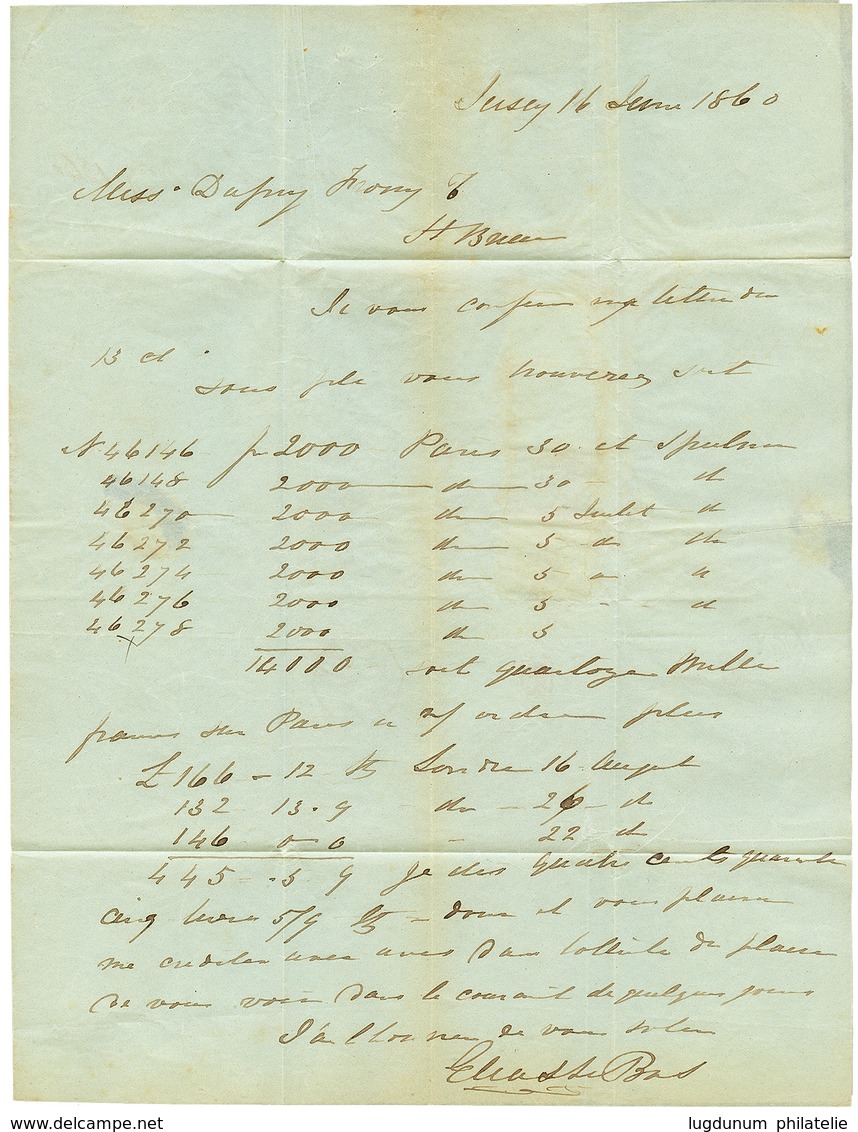 Jersey 16 Juin 1860
Mess. Dupuy &
St Brieuc
Je vous confirme ma lettre du
13 ct
sous pli vous trouverez soit
N 46146 fr 2000 Paris 30 ct
46148 2000 do 30 - do
46270 2000 do 5 Juillet do
46272 2000 do 5 do do
46274 2000 do 5 do
46276 2000 do 5 - do
46278 2000 do 5
14000 soit quatorze Mille
francs sur Paris a ordre plus
£ 166 - 12 Londre 16 August
132 13.9 do - 26 - do
146 0 0 - 22 do
445 - .3 9 Je dis quatre cents quarante
cinq livres 5/9 - dont il vous plaira
me crediter avec avis Dans l'attente du plaisir
de vous voir Dans le courant de quelques jours
J'ai l'honneur de vous saluer
Elias Le Bas
www.delcampe.net
lugdunum philatelie